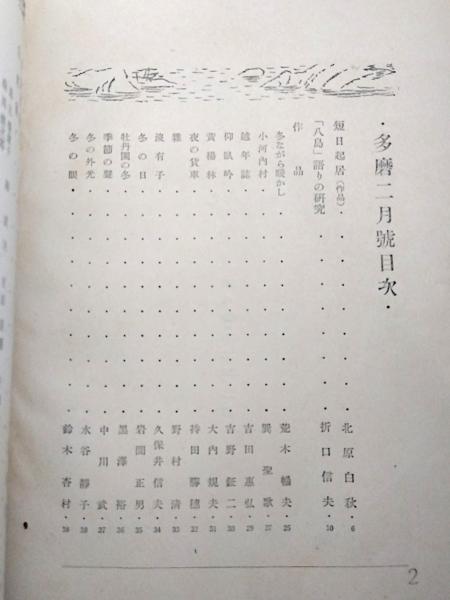 ・多磨二月號目次・
短日起居（作品）・・・・・・・・・・北原白秋・6
「八島」語りの研究・・・・・・・・・折口信夫・10
作品
冬ながら暖かし・・・・・・・・・・荒木暢夫・25
小河内村・・・・・・・・・・・・・巽聖歌・27
越年誌・・・・・・・・・・・・・・吉田惠弘・29
仰臥吟・・・・・・・・・・・・・・吉野鉦二・28
黄楊林・・・・・・・・・・・・・・大内規夫・31
夜の貨車・・・・・・・・・・・・・持田勝穗・32
雜・・・・・・・・・・・・・・・・野村清・33
波有子・・・・・・・・・・・・・・久保井信夫・34
冬の日・・・・・・・・・・・・・・岩間正男・35
牡丹園の冬・・・・・・・・・・・・黑澤裕・36
季節の聲・・・・・・・・・・・・・中川武・37
冬の外光・・・・・・・・・・・・・水谷靜子・38
冬の眼・・・・・・・・・・・・・・鈴木杏村・38
2